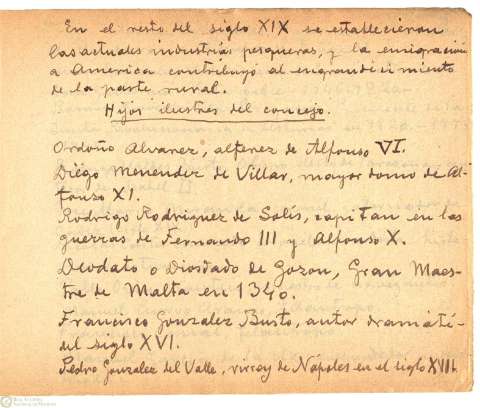 En el resto del siglo XIX se establecieron
las actuales industrias pesqueras, y la emigración
a America contribuyó al engrandecimiento
de la parte rural.
Hijos ilustres del concejo.
Ordoño Alvarez, alferez de Alfonso VI.
Diego Menendez de Villar, mayordomo de Al-
fonso XI.
Rodrigo Rodriguez de Solís, capitan en las
guerras de Fernando III y Alfonso X.
Deodato o Diosdado de Gozon, Gran Maes-
tre de Malta en 1340.
Francisco Gonzalez Busto, autor dramáti-
del siglo XVI.
Pedro Gonzalez del Valle, virrey de Nápoles en el siglo XVIII.